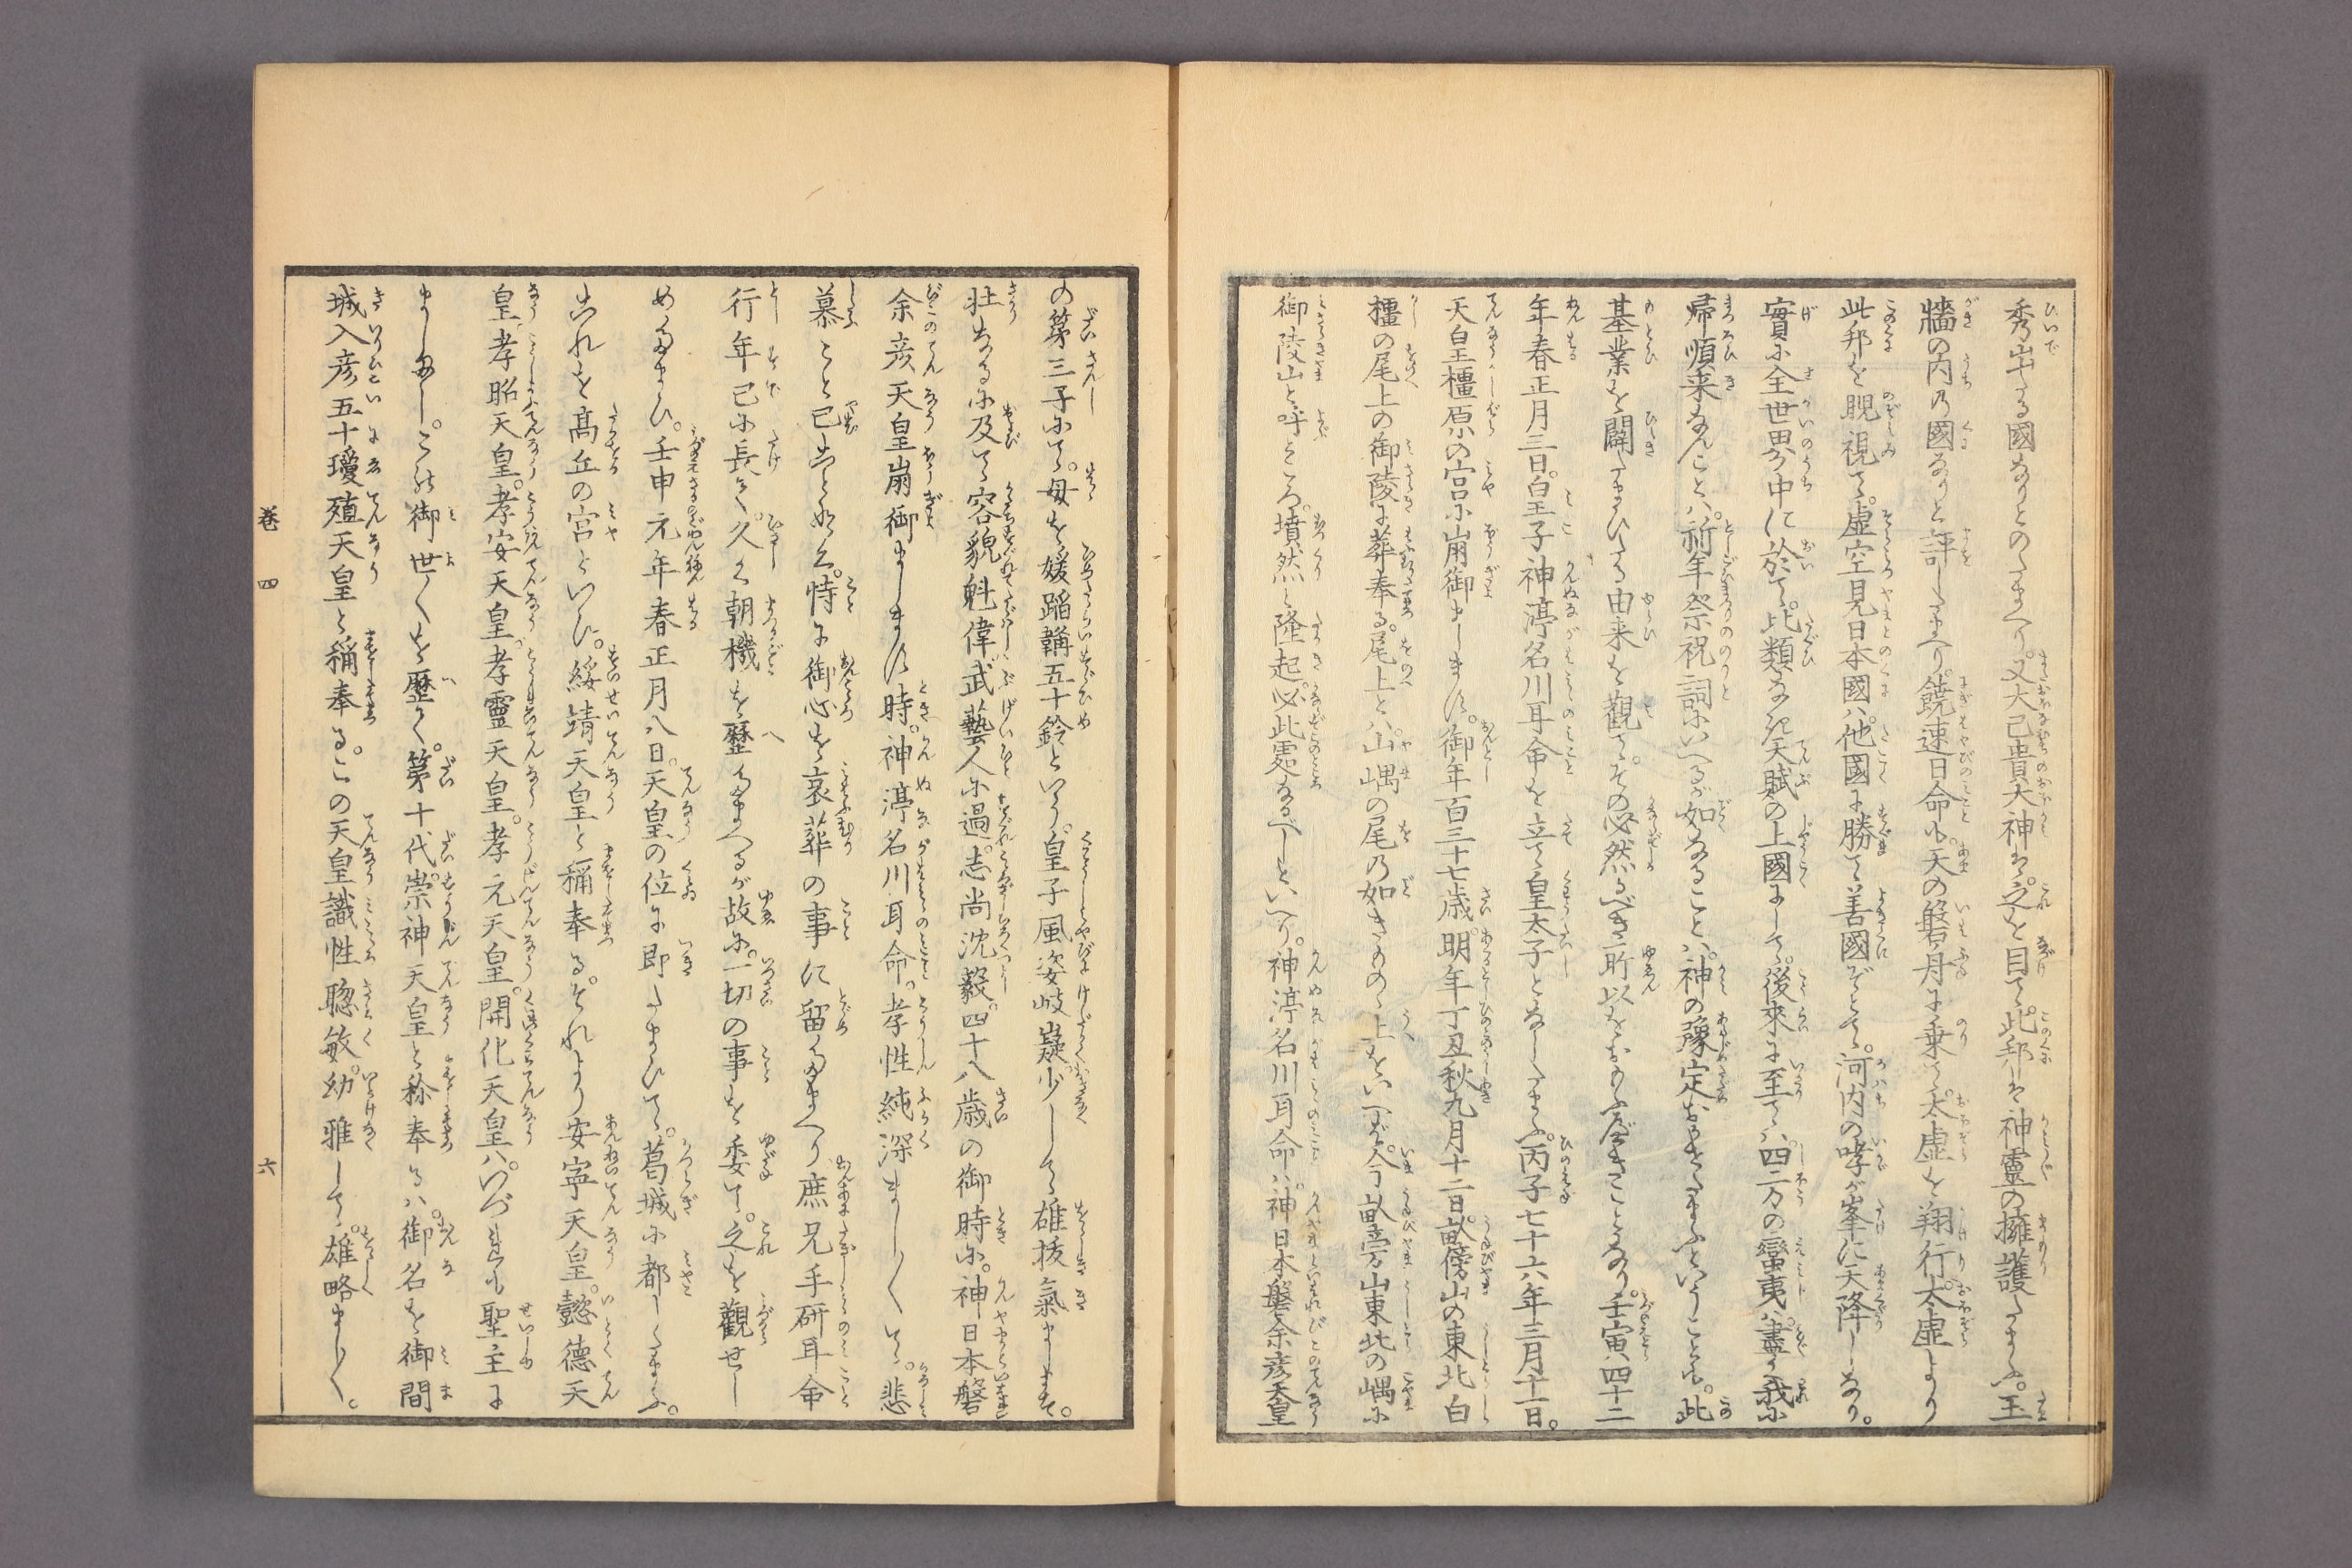 秀出る國なりとのたまへり。又大己貴大神は。之を目て。此邦は神靈の擁護たまふ。玉
牆の内の國なりと評したまへり。饒速日命も。天の磐舟に乗て。太虚を翔行。太虚より
此邦を睨視て。虚空見日本國は。他國に勝て善國ぞとて。河内の哮が峯に天降しなり。
實に全世界中に於て。比類なき天賦の上國にして。後來に至ては。四方の蠻夷は。盡く我に
帰順来なんことは。祈年祭祝詞にいへるが如なることは。神の豫定おかせたまふといふことも。此
基業を闢たまひたる由来を觀て。その必然るべき所以をおもふべきことなり。壬寅四十二
年春正月三日。皇子神渟名川耳命を立て皇太子となしたまふ。丙子七十六年三月十一日。
天皇橿原の宮に崩御まします。御年百三十七歳。明年丁丑秋九月十二日。畝傍山の東北白
橿の尾上の御陵に葬奉る。尾上とは。山嵎の尾の如きものゝ上をいへば。今畝傍山東北の嵎に
御陵山と呼ところ。墳然と隆起。必此處なるべしといへり。神渟名川耳命は。神日本磐余彦天皇
の第三子にて。母を媛蹈韛五十鈴といふ。皇子風姿岐嶷。少して雄抜氣まします。
壮なるに及て容貌魁偉武藝人に過。志尚沈毅。四十八歳の御時に。神日本磐
余彦天皇崩御まします時。神渟名川耳命。孝性純深まし〱て。悲
慕こと已ことなく。特に御心を哀葬の事に留たまへり庶兄手研耳命
行年已に長て。久く朝機を歴たまへるが故に。一切の事を委て。之を觀せし
めたまひ。壬申元年春正月八日。天皇の位に即たまひて。葛城に都したまふ。
これを高丘の宮といひ。綏靖天皇と稱奉る。それより安寧天皇。懿徳天
皇。孝昭天皇。孝安天皇。孝靈天皇。孝元天皇。開化天皇は。いづれも聖主に
まします。この御世〱を歴て。第十代崇神天皇と称奉るは。御名を御間
城入彦五十瓊殖天皇と稱奉る。この天皇識性聰敏。幼雅して。雄略まし〱。
巻四
六